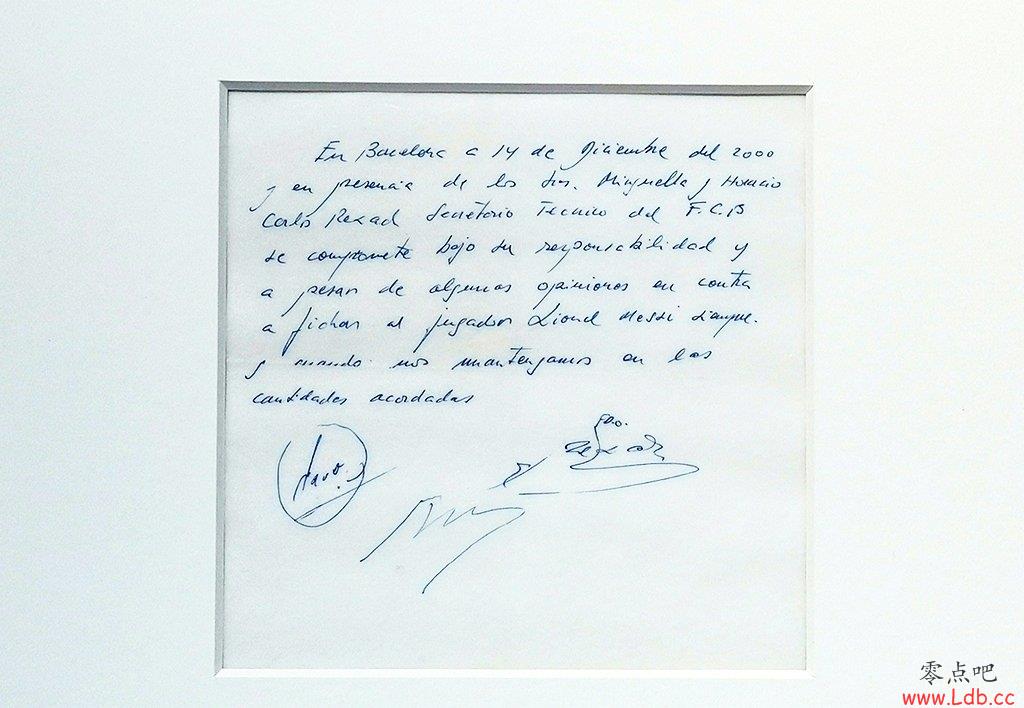 En Barcelona a 14 de Diciembre del 2000
y en presencia de los Sres. Minguella y Horacio
Carlos Rexach Secretario Tecnico del F.C.B
se compromete bajo su responsabilidad y
a pesar de algunas opiniones en contra
a fichar al jugador Lionel Messi siempre.
y cuando nos mantengamos en las
cantidades acordadas
Fdo.
零点吧
www.Ldb.cc